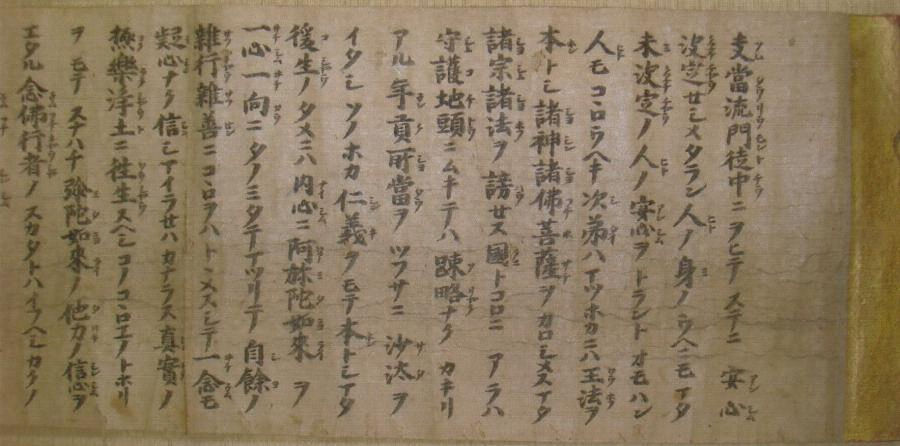 夫當流門徒中ニヲヒテステニ安心
決定セシメタラン人ノ身ノウヘニモマタ
未決定ノ人ノ安心ヲトラントオモハン
人モコヽロウヘキ次第ハマツホカニハ王法ヲ
本トシ諸神諸佛菩薩ヲカロシメスマタ
諸宗諸法ヲ謗セス國トコロニアラハ
守護地頭ニムキテハ踈略ナクカキリ
アル年貢所當ヲツフサニ沙汰ヲ
イタシソノホカ仁義ヲモテ本トシマタ
後生ノタメニハ内心ニ阿弥陀如來ヲ
一心一向ニタノミタテマツリテ自餘ノ
雜行雜善ニコヽロヲハトヽメスシテ一念モ
疑心ナク信シマイラセハカナラス真實ノ
極樂淨土ニ徃生スヘシコノコヽロエノトホリ
ヲモテスナハチ弥陀如來ノ他力ノ信心ヲ
エタル念佛行者ノスカタトハイフヘシカクノ